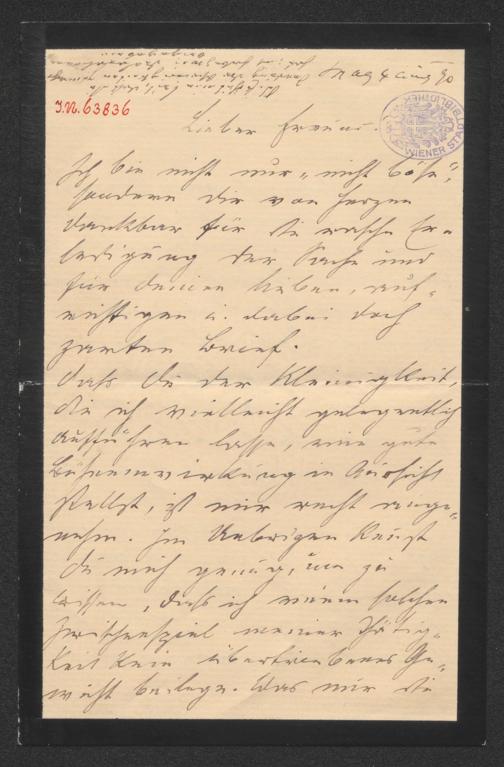 Prag 4 Aug 90
J.N. 63836
WIENER STADTBIBLIOTHEK
Lieber Freund.
Ich bin nicht nur „nicht böse",
sondern dir von Herzen
dankbar für die rasche Er=
ledigung der Sache und
für deinen lieben, auf=
richtigen u. dabei doch
zarten Brief.
Daß du der Kleinigkeit,
die ich vielleicht gelegentlich
aufführen lasse, eine gute
Bühnenwirkung in Aussicht
stellst, ist mir recht ange=
nehm. Im Uebrigen kennst
du mich genug, um zu
wissen, daß ich einem solchen
Zwischenspiel meiner Thätig=
keit kein übertriebenes Ge=
wicht beilege. Was mir die